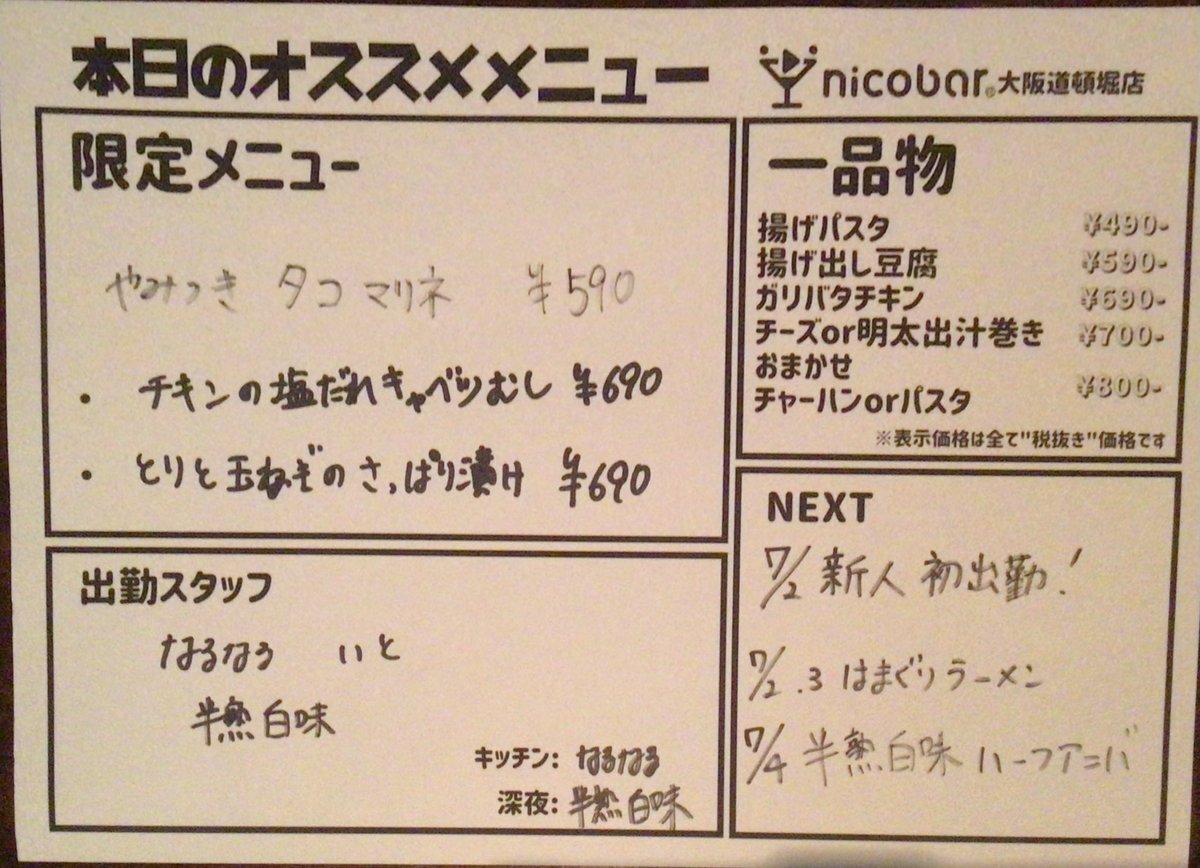 本日のオススメメニュー
nicobar®大阪道頓堀店
限定メニュー
やみつき タコ マリネ ¥590
・ チキンの塩だれキャベツむし ¥690
・ とりと玉ねぎのさっぱり漬け ¥690
一品物
揚げパスタ ¥490-
揚げ出し豆腐 ¥590-
ガリバタチキン ¥690-
チーズor明太出汁巻き ¥700-
おまかせ
チャーハンorパスタ ¥800-
※表示価格は全て"税抜き"価格です
出勤スタッフ
なるなる いと
半熟白味
キッチン: なるなる
深夜: 半熟白味
NEXT
7/2 新人 初出勤!
7/2.3 はまぐりラーメン
7/4 半熟白味 ハーフアニバ